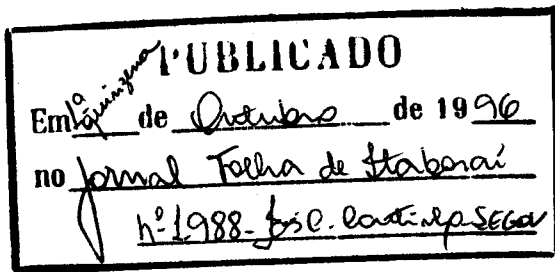 PUBLICADO
Em 1ª quinzena de Outubro de 1996
no jornal Folha de Itaboraí
nº 1.988 - José C.